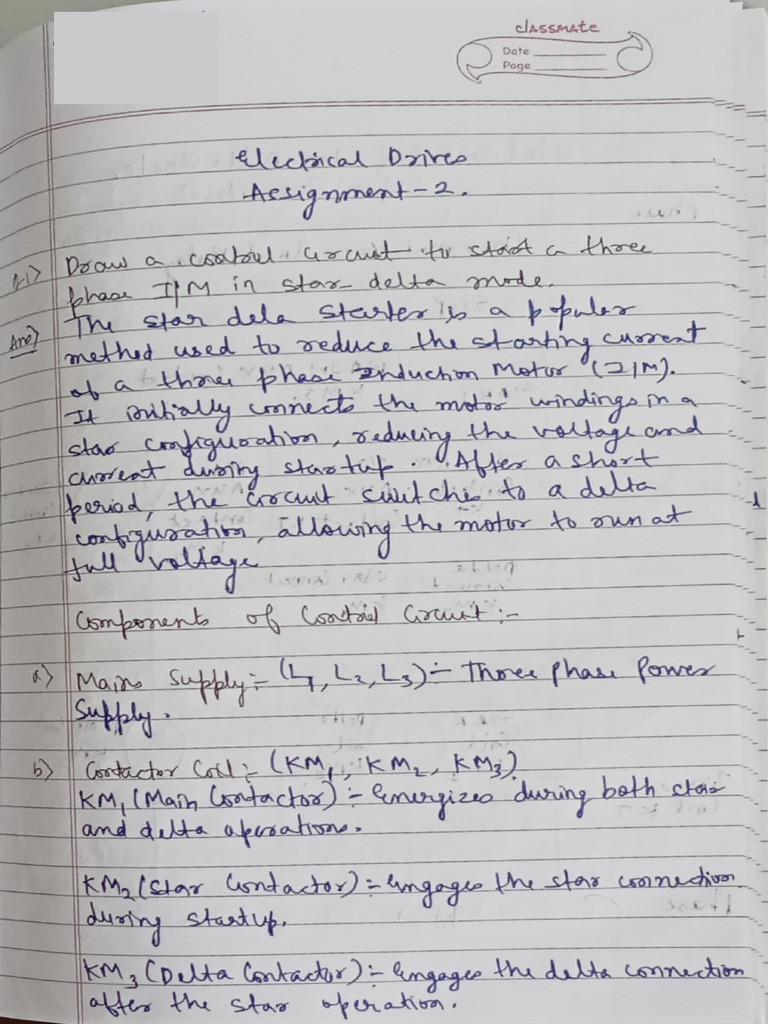 classmate
Date
Page
Electrical Drives
Assignment - 2.
Q.1> Draw a control circuit to start a three
phase I/M in star-delta mode.
Ans> The star dela starter is a popular
method used to reduce the starting current
of a three phase Induction Motor (I/M).
It initially connects the motor windings in a
star configuration, reducing the voltage and
current during startup. After a short
period, the circuit switches to a delta
configuration, allowing the motor to run at
full voltage
Components of Control Circuit :-
a) Mains Supply :- (L1, L2, L3) :- Three phase Power
Supply.
b) Contactor Coil :- (KM1, KM2, KM3)
KM1 (Main Contactor) :- Energizes during both star
and delta operations.
KM2 (Star Contactor) :- Engages the star connection
during startup.
KM3 (Delta Contactor) :- Engages the delta connection
after the star operation.